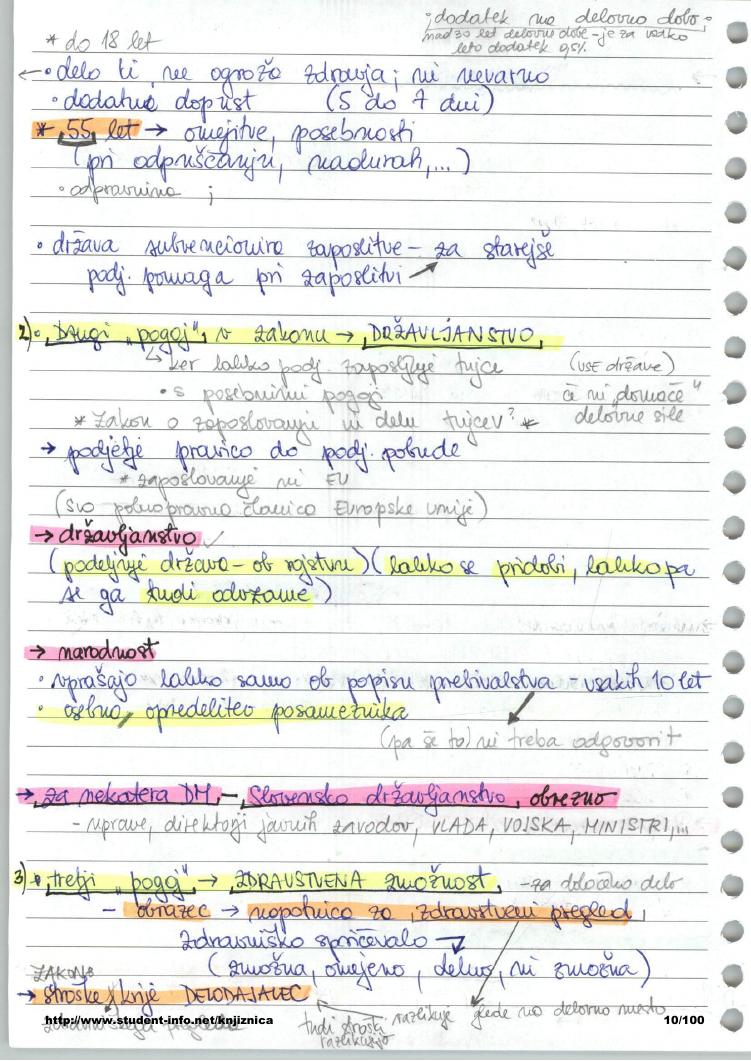 ; dodatek na delovno dobo.
nad 20 let delovne dobe - je za vsako
leto dodatek 0,5%
* do 18 let
• delo ti ne ogroža zdravja; ni nevarno
• dodatni dopust (5 do 7 dni)
* 55 let → omejitve, posebnosti
(pri odpuščanju, nadurah,...)
• odpravnina ;
• država subvencionira zaposlitve - za starejše
podj. pomaga pri zaposlitvi
2) • Drugi "pogoj", v zakonu → DRŽAVLJANSTVO
ker lahko podj. zaposljuje tujce (VSE države)
• s posebnimi pogoji če ni "domače"
* Zakon o zaposlovanju in delu tujcev? * delovne sile
→ podjetje pravico do podj. pobude
* zaposlovanje ni EU
(smo polnopravna članica Evropske unije)
→ državljanstvo ✓
(podeljuje država - ob rojstvu) (lahko se pridobi, lahko pa
se ga tudi odvzame)
→ narodnost
• vprašajo lahko samo ob popisu prebivalstva - vsakih 10 let
• osebna opredelitev posameznika
(pa še to) ni treba odgovorit
→ za nekatera DM - Slovensko državljanstvo, obvezno
- uprave, direktorji javnih zavodov, VLADA, VOJSKA, MINISTRI,...
3) • tretji "pogoj" → ZDRAVSTVENA zmožnost, - za določeno delo
- obrazec → napotnica za zdravstveni pregled,
zdravniško spričevalo
(zmožna, omejeno, delno, ni zmožna)
ZAKON
→ stroške krije DELODAJALEC
zdravniškega pregleda
tudi stroški razlikuje glede na delovno mesto
razlikujejo
http://www.student-info.net/knjiznica 10/100